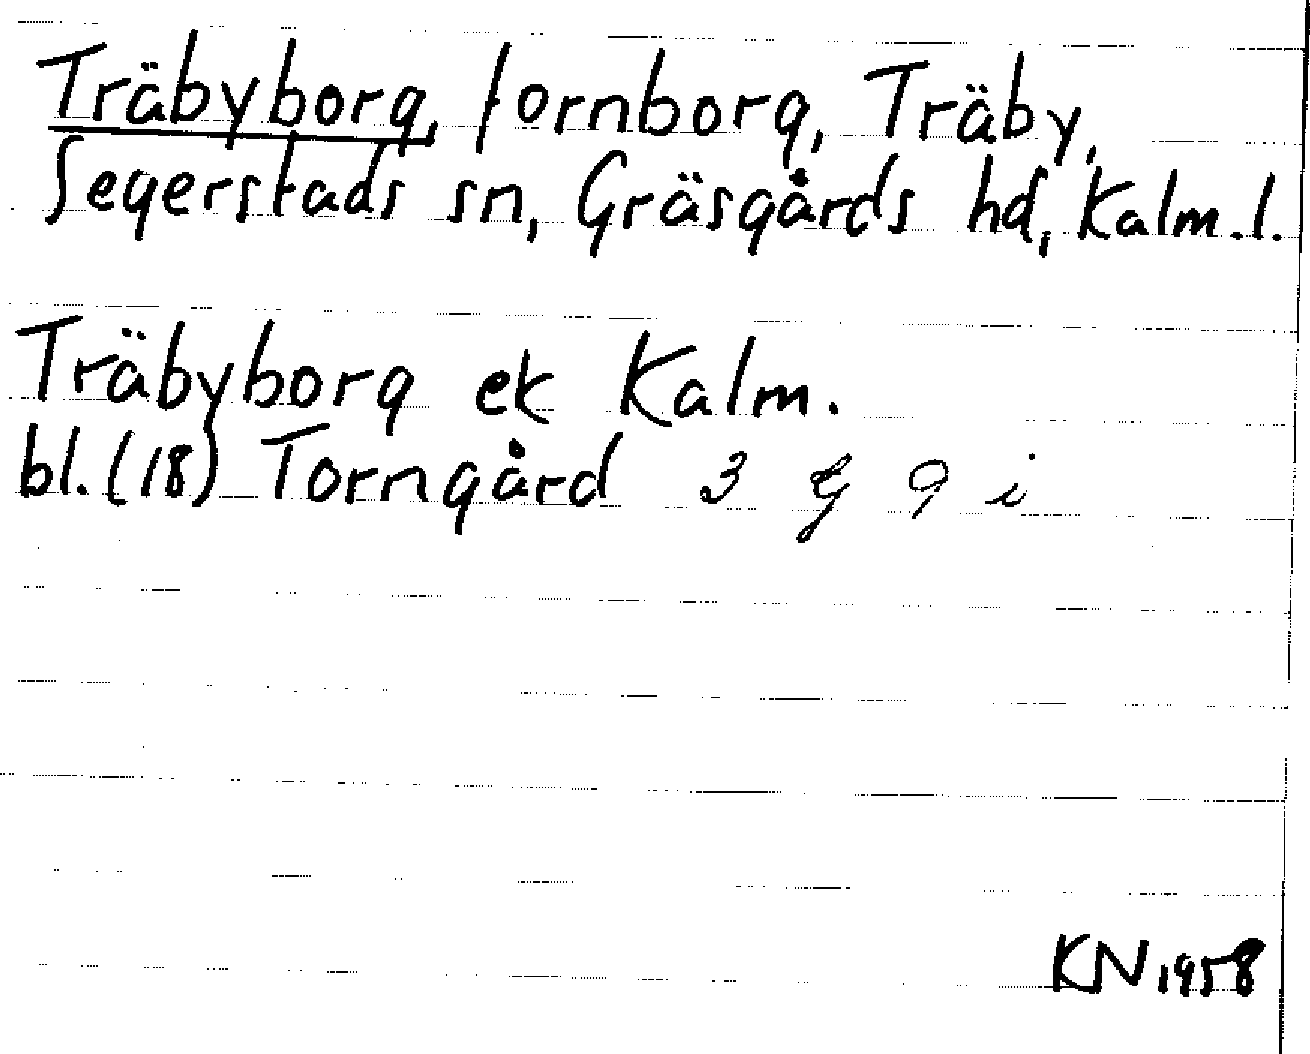 Träbyborg, fornborg, Träby,
Segerstads sn, Gräsgårds hd, Kalm. l.
Träbyborg ek Kalm.
bl. (18) Torngård 3 G 9 i
KN 1958